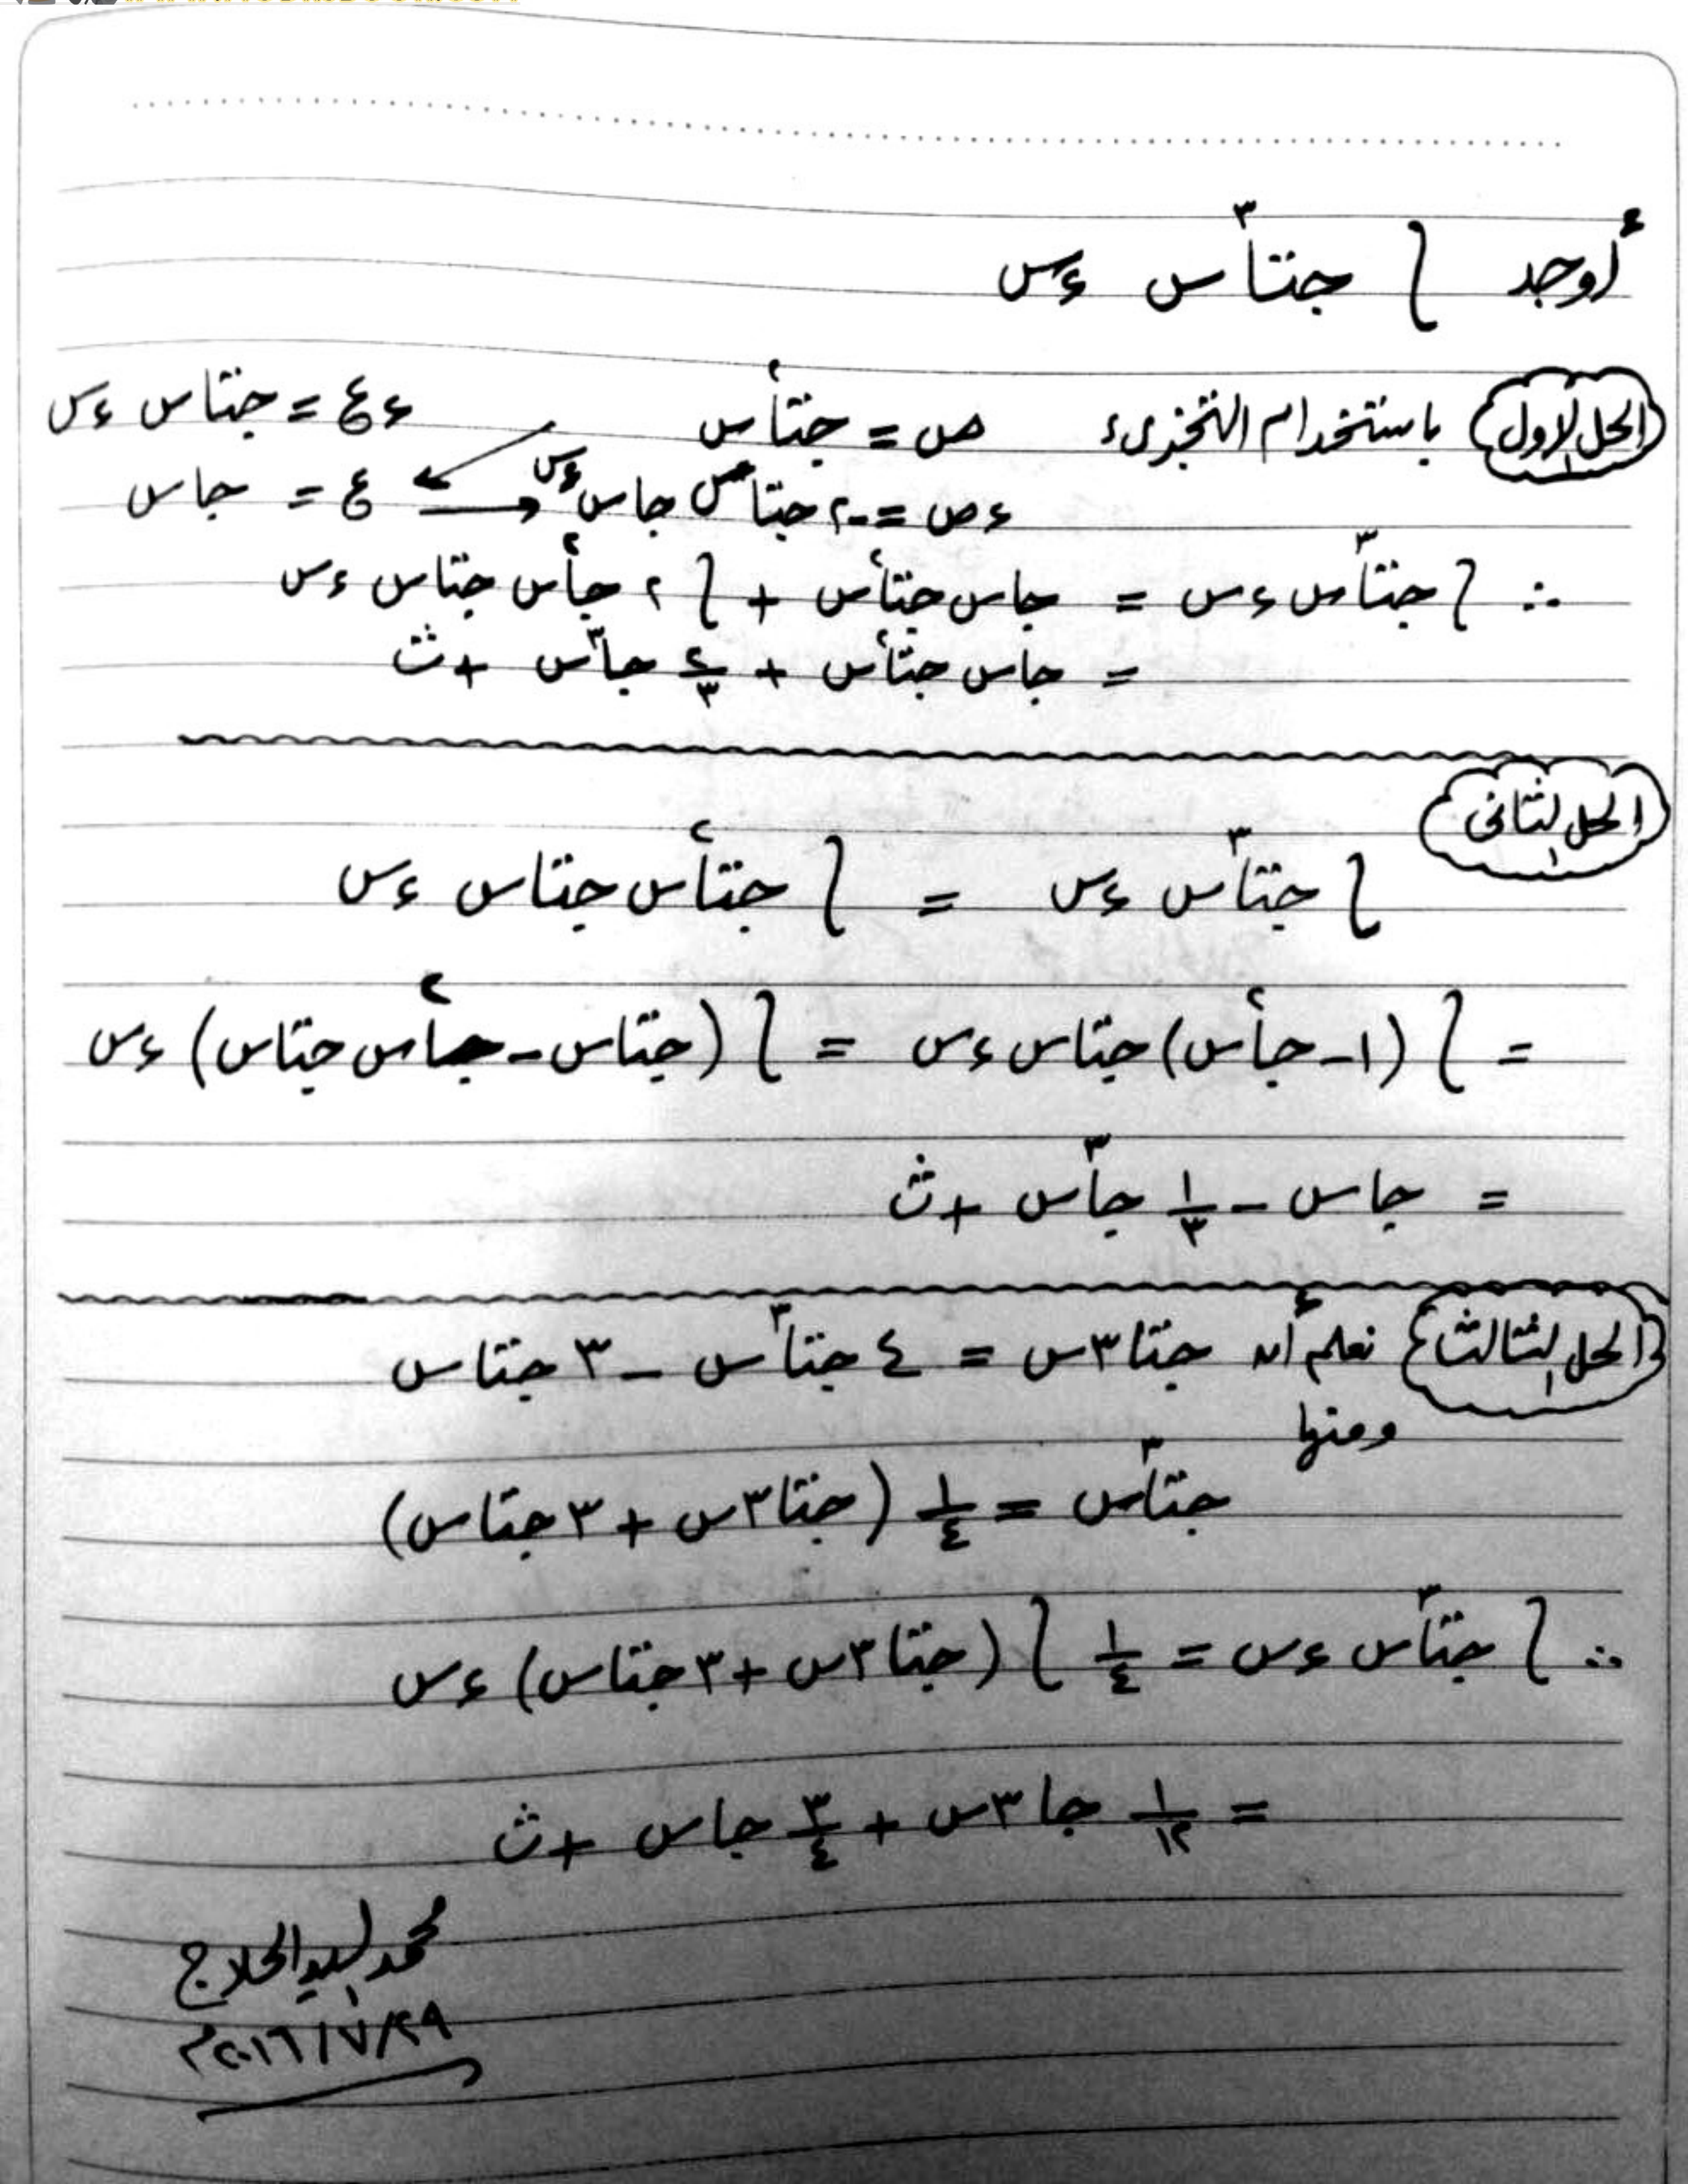 أوجد ∫ جتا³س ءس
الحل الأول باستخدام التجزىء ص = جتا²س ءع = جتاس ءس
ءص = -٢ جتاس جاس ءس ع = جاس
∴ ∫ جتا³س ءس = جاس جتا²س + ∫ ٢ جا²س جتاس ءس
= جاس جتا²س + ٢/٣ جا³س + ث
الحل الثانى
∫ جتا³س ءس = ∫ جتا²س جتاس ءس
= ∫ (١ - جا²س) جتاس ءس = ∫ (جتاس - جا²س جتاس) ءس
= جاس - ١/٣ جا³س + ث
الحل الثالث نعلم أن جتا٣س = ٤ جتا³س - ٣ جتاس
ومنها
جتا³س = ١/٤ (جتا٣س + ٣ جتاس)
∴ ∫ جتا³س ءس = ١/٤ ∫ (جتا٣س + ٣ جتاس) ءس
= ١/١٢ جا٣س + ٣/٤ جاس + ث
محمد السيد الحلاج
٢٩/٧/٢٠١٦م